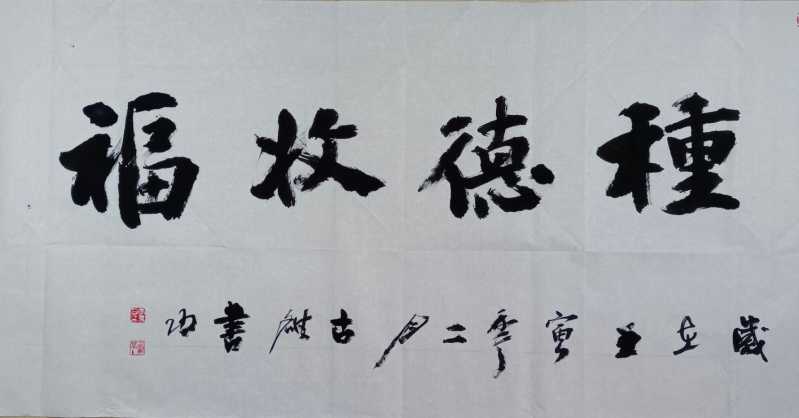 種德收福
歲在壬寅二月古書